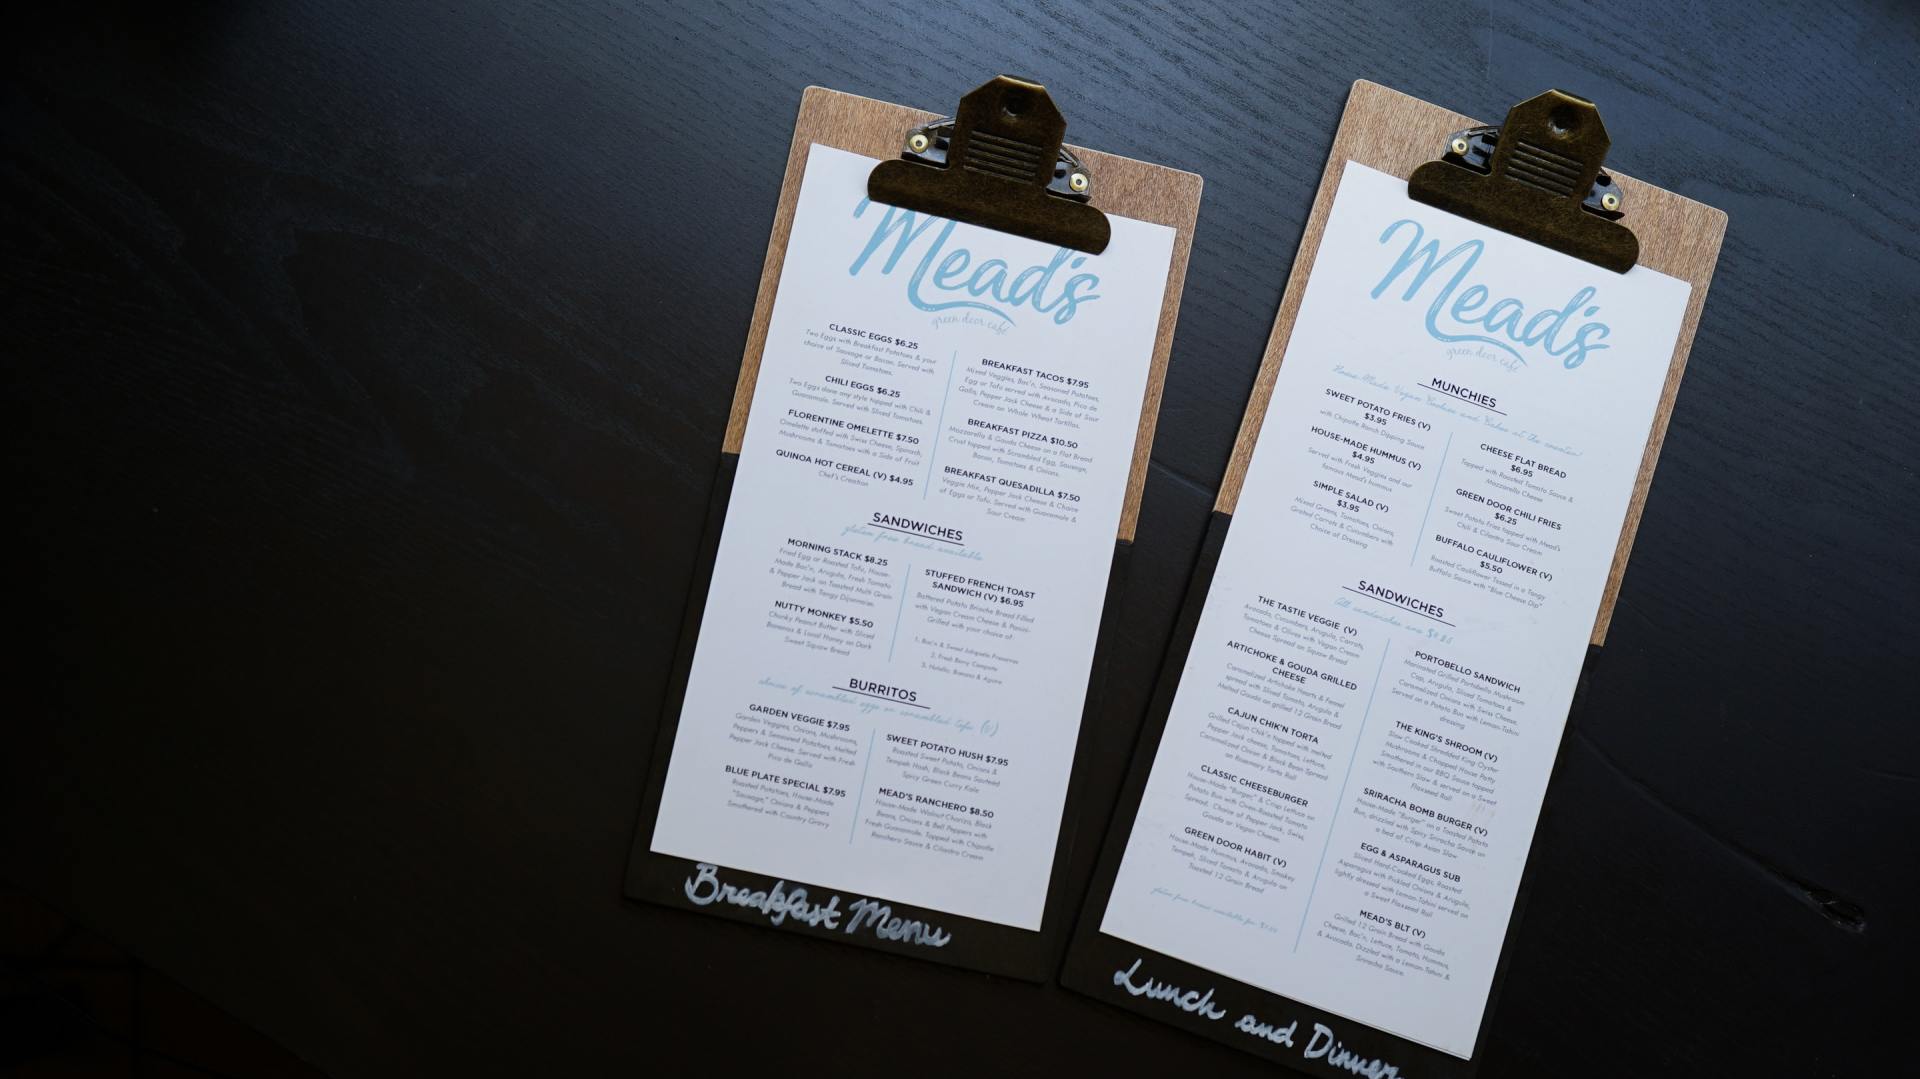 Mead's
green door café
CLASSIC EGGS $6.25
Two Eggs with Breakfast Potatoes & your
choice of Sausage or Bacon. Served with
Sliced Tomatoes.
CHILI EGGS $6.25
Two Eggs done any style topped with Chili &
Guacamole. Served with Sliced Tomatoes.
FLORENTINE OMELETTE $7.50
Omelette stuffed with Swiss Cheese, Spinach,
Mushrooms & Tomatoes with a Side of Fruit
QUINOA HOT CEREAL (V) $4.95
Chef's Creation
BREAKFAST TACOS $7.95
Mixed Veggies, Bac'n, Seasoned Potatoes,
Egg or Tofu served with Avocado, Pico de
Gallo, Pepper Jack Cheese & a Side of Sour
Cream on Whole Wheat Tortillas.
BREAKFAST PIZZA $10.50
Mozzarella & Gouda Cheese on a Flat Bread
Crust topped with Scrambled Egg, Sausage,
Bacon, Tomatoes & Onions.
BREAKFAST QUESADILLA $7.50
Veggie Mix, Pepper Jack Cheese & Choice
of Eggs or Tofu. Served with Guacamole &
Sour Cream
SANDWICHES
gluten free bread available
MORNING STACK $8.25
Fried Egg or Roasted Tofu, House-
Made Bac'n, Arugula, Fresh Tomato
& Pepper Jack on Toasted Multi Grain
Bread with Tangy Dijonnaise.
NUTTY MONKEY $5.50
Chunky Peanut Butter with Sliced
Bananas & Local Honey on Dark
Sweet Squaw Bread
STUFFED FRENCH TOAST
SANDWICH (V) $6.95
Battered Potato Brioche Bread Filled
with Vegan Cream Cheese & Panini-
Grilled with your choice of:
1. Bac'n & Sweet Jalapeño Preserves
2. Fresh Berry Compote
3. Nutella, Banana & Agave
BURRITOS
choice of scrambled eggs or scrambled tofu (V)
GARDEN VEGGIE $7.95
Garden Veggies, Onions, Mushrooms,
Peppers & Seasoned Potatoes, Melted
Pepper Jack Cheese. Served with Fresh
Pico de Gallo
BLUE PLATE SPECIAL $7.95
Roasted Potatoes, House-Made
"Sausage," Onions & Peppers
Smothered with Country Gravy
SWEET POTATO HUSH $7.95
Roasted Sweet Potato, Onions &
Tempeh Hash, Black Beans Sauteed
Spicy Green Curry Kale
MEAD'S RANCHERO $8.50
House-Made Walnut Chorizo, Black
Beans, Onions & Bell Peppers with
Fresh Guacamole. Topped with Chipotle
Ranchero Sauce & Cilantro Cream
Breakfast Menu
Mead's
green door café
MUNCHIES
House Made Vegan Cookies and Cakes at the counter!
SWEET POTATO FRIES (V)
$3.95
with Chipotle Ranch Dipping Sauce
HOUSE-MADE HUMMUS (V)
$4.95
Served with Fresh Veggies and our
famous Mead's hummus
SIMPLE SALAD (V)
$3.95
Mixed Greens, Tomatoes, Onions,
Grated Carrots & Cucumbers with
Choice of Dressing
CHEESE FLAT BREAD
$6.95
Topped with Roasted Tomato Sauce &
Mozzarella Cheese
GREEN DOOR CHILI FRIES
$6.25
Sweet Potato Fries topped with Mead's
Chili & Cilantro Sour Cream
BUFFALO CAULIFLOWER (V)
$5.50
Roasted Cauliflower Tossed in a Tangy
Buffalo Sauce with "Blue Cheese Dip"
SANDWICHES
All sandwiches are
THE TASTIE VEGGIE (V)
Avocado, Cucumbers, Arugula, Carrots,
Tomatoes & Olives with Vegan Cream
Cheese Spread on Squaw Bread
ARTICHOKE & GOUDA GRILLED
CHEESE
Caramelized Artichoke Hearts & Fennel
spread with Sliced Tomato, Arugula &
Melted Gouda on grilled 12 Grain Bread
CAJUN CHIK'N TORTA
Grilled Cajun Chik'n topped with melted
Pepper Jack cheese, Tomatoes, Lettuce,
Caramelized Onion & Black Bean Spread
on Rosemary Torta Roll
CLASSIC CHEESEBURGER
House-Made "Burger" & Crisp Lettuce on
Potato Bun with Oven-Roasted Tomato
Spread. Choice of Pepper Jack, Swiss,
Gouda or Vegan Cheese.
GREEN DOOR HABIT (V)
House-Made Hummus, Avocado, Smokey
Tempeh, Sliced Tomato & Arugula on
Toasted 12 Grain Bread
gluten free bread available for
PORTOBELLO SANDWICH
Marinated Grilled Portobello Mushroom
Cap, Arugula, Sliced Tomato &
Caramelized Onions with Swiss Cheese.
Served on a Potato Bun with Lemon-Tahini
dressing
THE KING'S SHROOM (V)
Slow Cooked Shredded King Oyster
Mushrooms & Chopped House Patty
Smothered in our BBQ Sauce topped
with Southern Slaw & served on a Sweet
Flaxseed Roll
SRIRACHA BOMB BURGER (V)
House-Made "Burger" on a Toasted Potato
Bun, drizzled with Spicy Sriracha Sauce on
a bed of Crisp Asian Slaw
EGG & ASPARAGUS SUB
Sliced Hard-Cooked Eggs, Roasted
Asparagus with Pickled Onions & Arugula,
lightly dressed with Lemon-Tahini served on
a Sweet Flaxseed Roll
MEAD'S BLT (V)
Grilled 12 Grain Bread with Gouda
Cheese, Bac'n, Lettuce, Tomato, Hummus,
& Avocado. Dizzled with a Lemon-Tahini &
Sriracha Sauce.
Lunch and Dinner